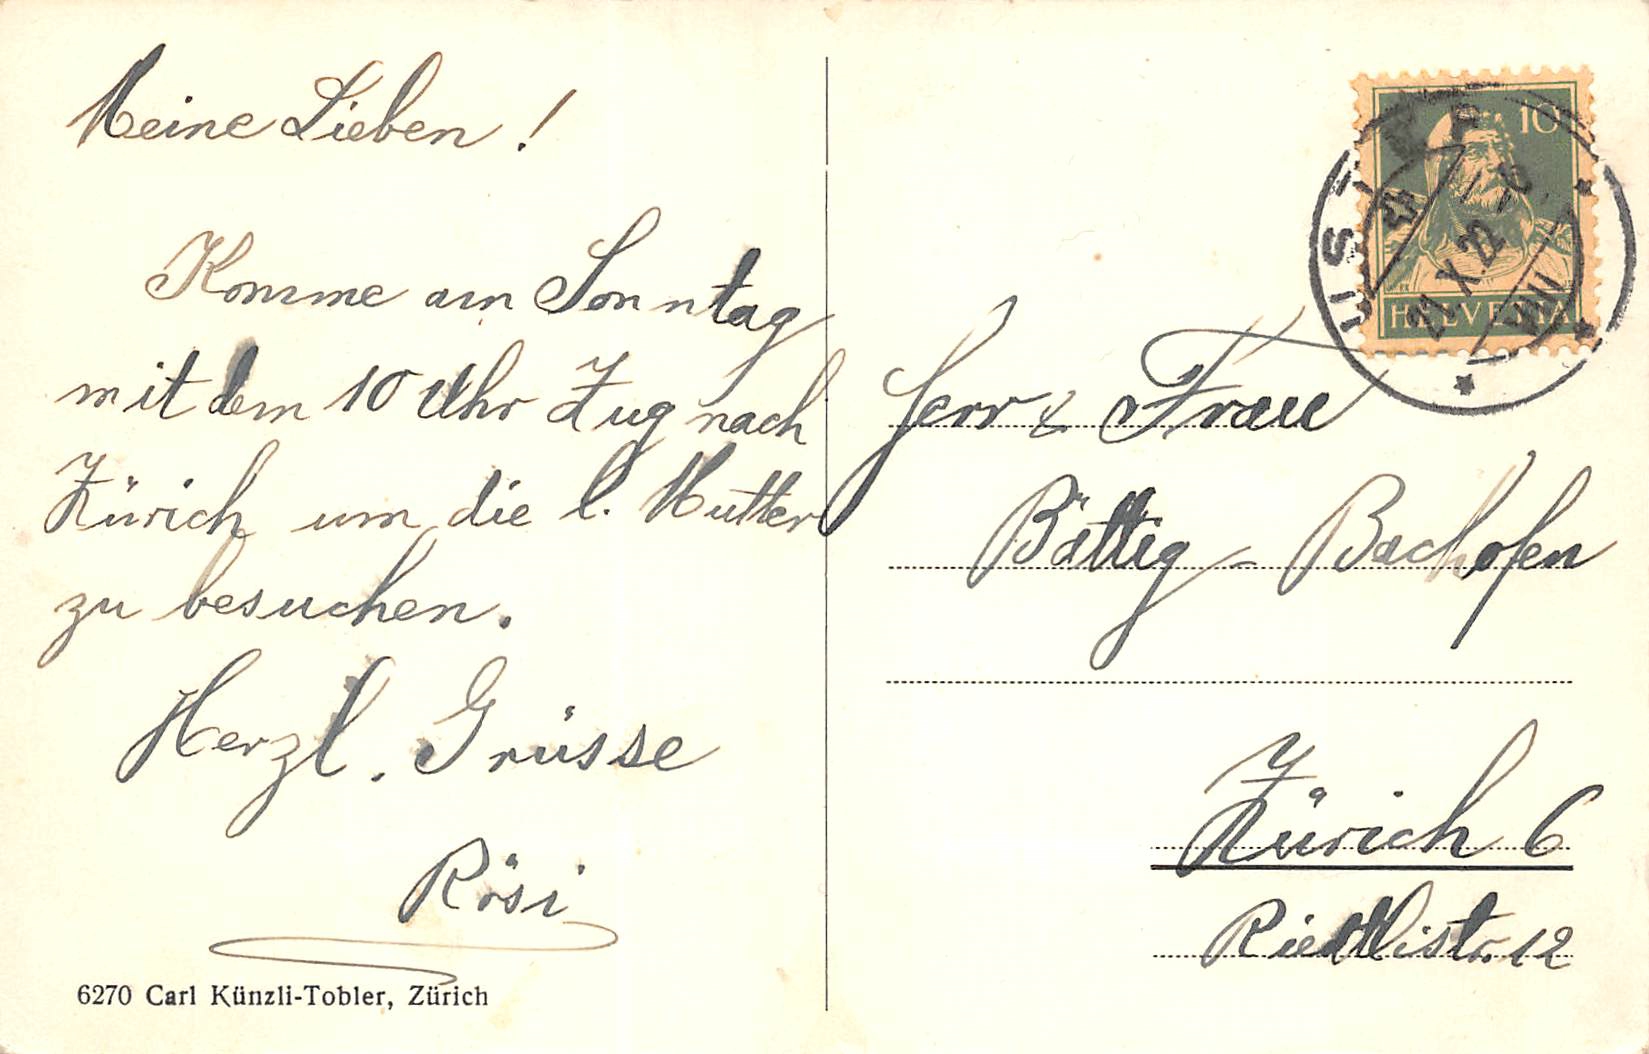 Meine Lieben!
Komme am Sonntag
mit dem 10 Uhr Zug nach
Zürich um die l. Mutter
zu besuchen.
Herzl. Grüsse
Rösi
6270 Carl Künzli-Tobler, Zürich
10
HELVETIA
USTER
21.X.22
VIII
Herr & Frau
Bättig - Bachofen
Zürich 6
Riedtlistr. 12